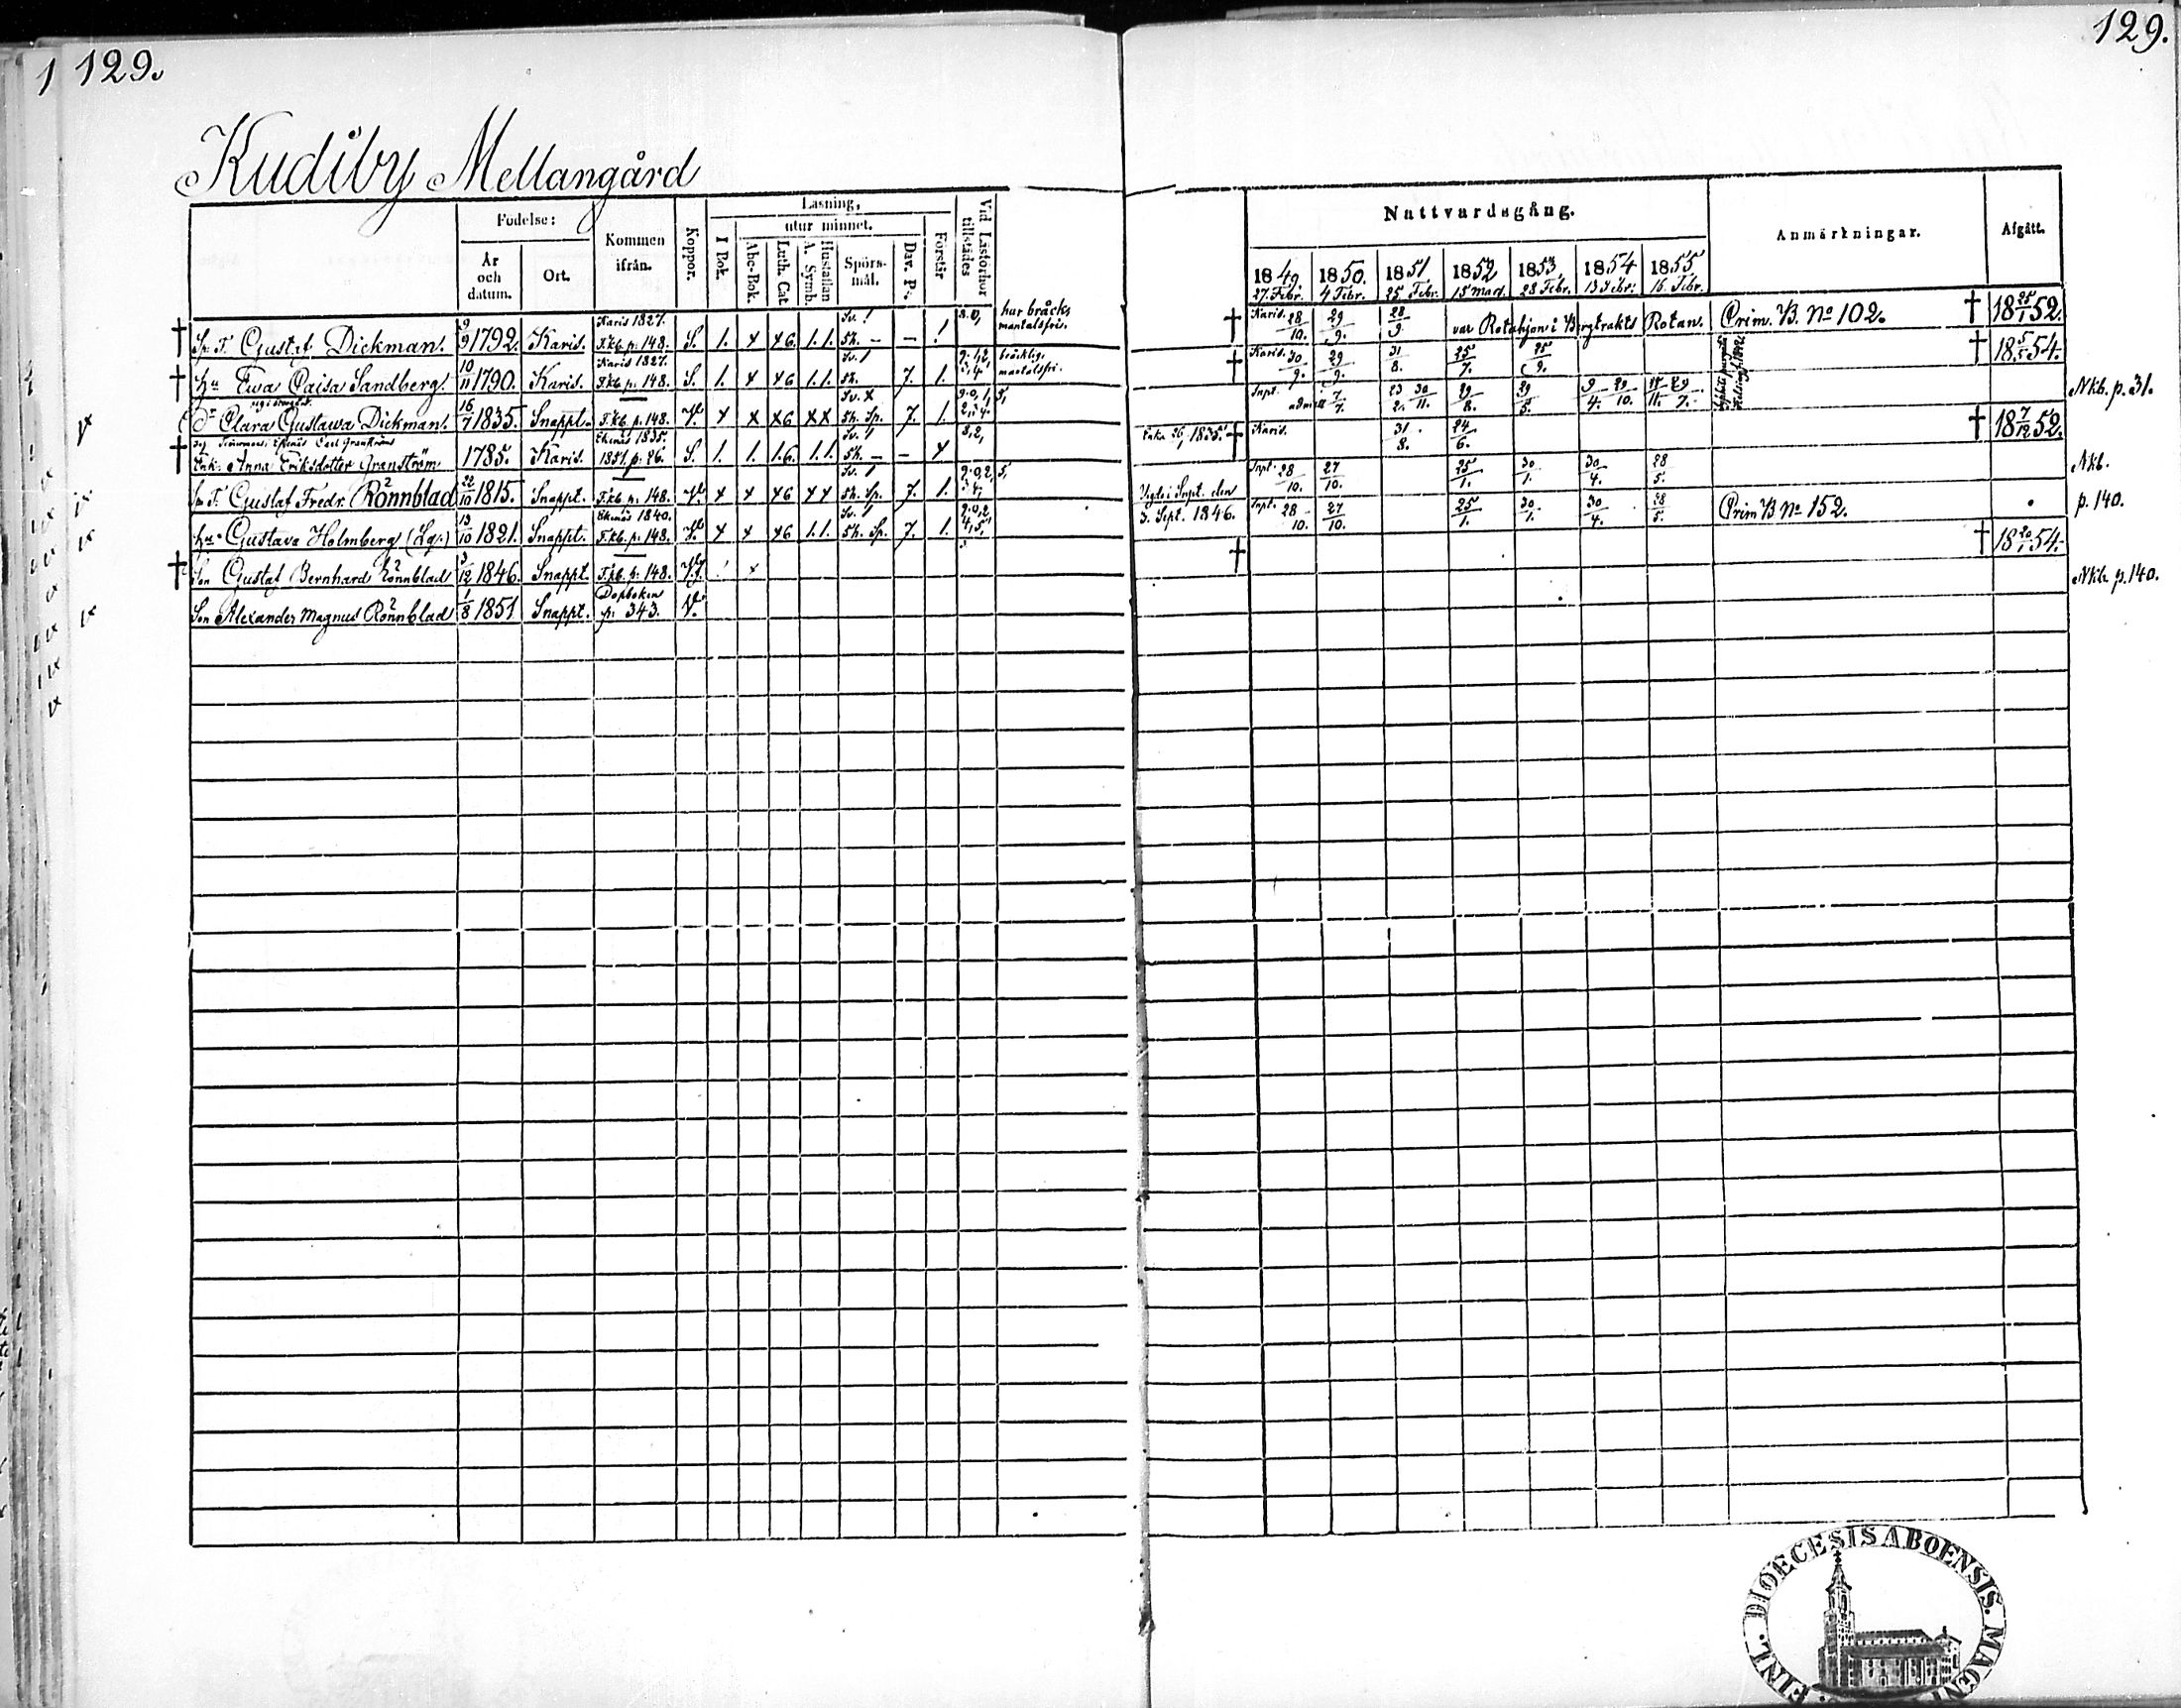 1 129.
129.
Kudiby Mellangård
Födelse:
År och datum.
Ort.
Kommen ifrån.
Koppor.
Läsning,
utur minnet.
I Bok.
Abc-Bok.
Luth. Cat.
Hustaflan A. Symb.
Spörsmål.
Dav. Ps.
Förstår.
Vid Läsförhör tillstädes
Nattvardsgång.
1849. 27. Febr.
1850. 4 Febr.
1851. 25 Febr.
1852 15 Mart.
1853. 28 Febr.
1854 13 Febr.
1855. 16 Febr.
Anmärkningar.
Afgått.
† Sp. T. Gustaf Dickman. 9/9 1792. Karis. Karis 1827. F.kb. p. 148. S. 1. x x6 1.1. Sv. 1 Sh. – – 1 har bråck, mantalsfri. † Karis. 28/10. 29/9. 28/9 var Rotehjon i Bergtrakts Rotan. Prim. B. No 102. † 18 25/1 52.
† Hu Ewa Caisa Sandberg. 10/11 1790. Karis. Karis 1827. F.kb p. 148. S. 1. x x6 1.1. Sv. 1 Sh. 7. 1. bräcklig. mantalsfri. † Karis. 30/9. 29/9. 31/8. 25/7. 25/9. † 18 5/5 54.
Dr Clara Gustawa Dickman. 16/7 1835. Snappt. F.kb. p. 148. V. x x x6 x x Sv. x Sh. Sp. 7. 1. Snpt. admitt 7/7. 23/2. 30/11. 29/8. 29/5. 9/4. 29/10. Nkb. p. 31.
† Enk. Anna Eriksdotter Granström 1785. Karis. Ekenäs 1835. 1851. p. 26. S. 1. 1. 1.6. 1.1. Sv. 1 Sh. – – x 3,2, Enka 26, 1835. † Karis. 31/8. 24/6. † 18 7/12 52.
Sp T. Gustaf Fredr. Rönnblad 22/10 1815. Snappt. F.kb. p. 148. V. x x x6 x x Sv. 1 Sh. Sp. 7. 1. Vigde i Snpt. den Snpt. 28/10. 27/10. 25/1. 30/1. 30/4. 28/5. Nkb.
Hu Gustava Holmberg (Lg.) 13/10 1821. Snappt. Ekenäs 1840. F.kb. p. 148. V. x x x6 1.1. Sv. 1 Sh. Sp. 7. 1. 3. Sept. 1846. Snpt. 28/10. 27/10. 25/1. 30/1. 30/4. 28/5. Prim B No 152. p. 140.
† Son Gustaf Bernhard Rönnblad 3/12 1846. Snappt. F.kb. p. 148. x † † 18 20/1 54.
Son Alexander Magnus Rönnblad 1/8 1851 Snappt. Dopboken p. 343. V. Nkb. p. 140.
FINL. DIOECESIS ABOENSIS. MAGNI